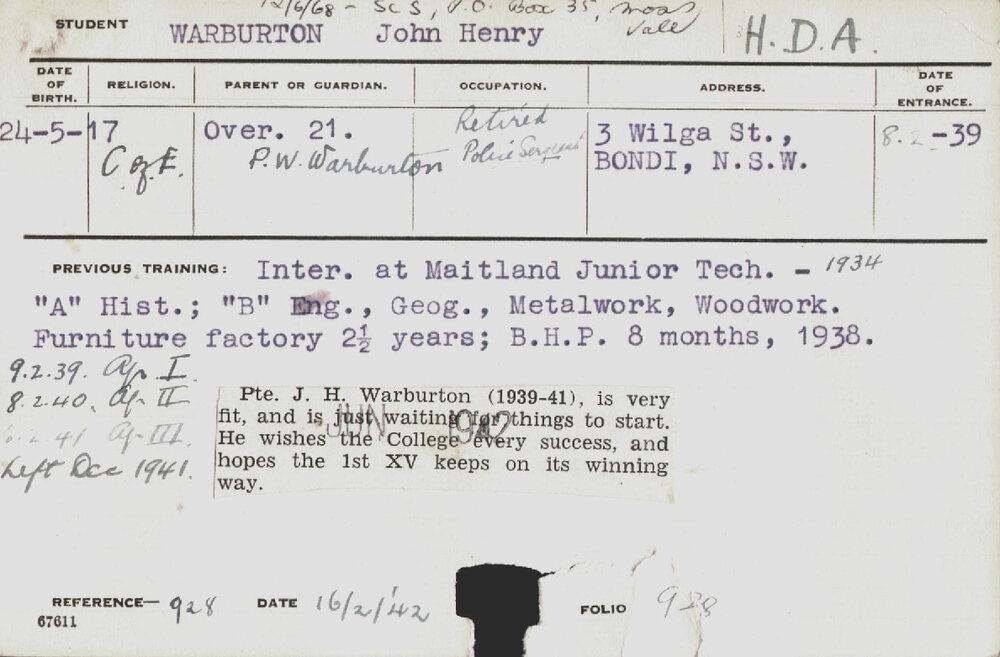 12/6/68 - SCS, P.O. Box 35, Moss Vale
STUDENT WARBURTON John Henry H.D.A.
DATE OF BIRTH. RELIGION. PARENT OR GUARDIAN. OCCUPATION. ADDRESS. DATE OF ENTRANCE.
24-5-17 C of E. Over. 21. Retired 3 Wilga St., 8.2.-39
P.W. Warburton Police Sergeant BONDI, N.S.W.
PREVIOUS TRAINING: Inter. at Maitland Junior Tech. - 1934
"A" Hist.; "B" Eng., Geog., Metalwork, Woodwork.
Furniture factory 2½ years; B.H.P. 8 months, 1938.
9.2.39. Ag. I.
8.2.40. Ag. II
6.2.41 Ag. III.
Left Dec 1941.
Pte. J. H. Warburton (1939-41), is very
fit, and is just waiting for things to start.
He wishes the College every success, and
hopes the 1st XV keeps on its winning
way.
JUN 1942
REFERENCE— 928 DATE 16/2/42 FOLIO 928
67611